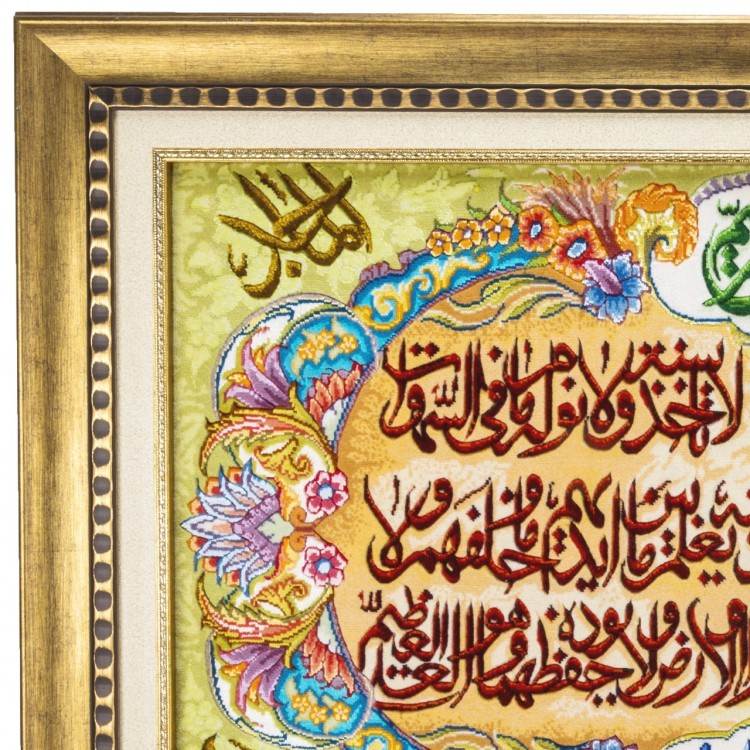 لا تاخذه سنة ولا نوم له ما في السموات
يعلم ما بين ايديهم وما خلفهم ولا
والارض ولا يوده حفظهما وهو العلي العظيم